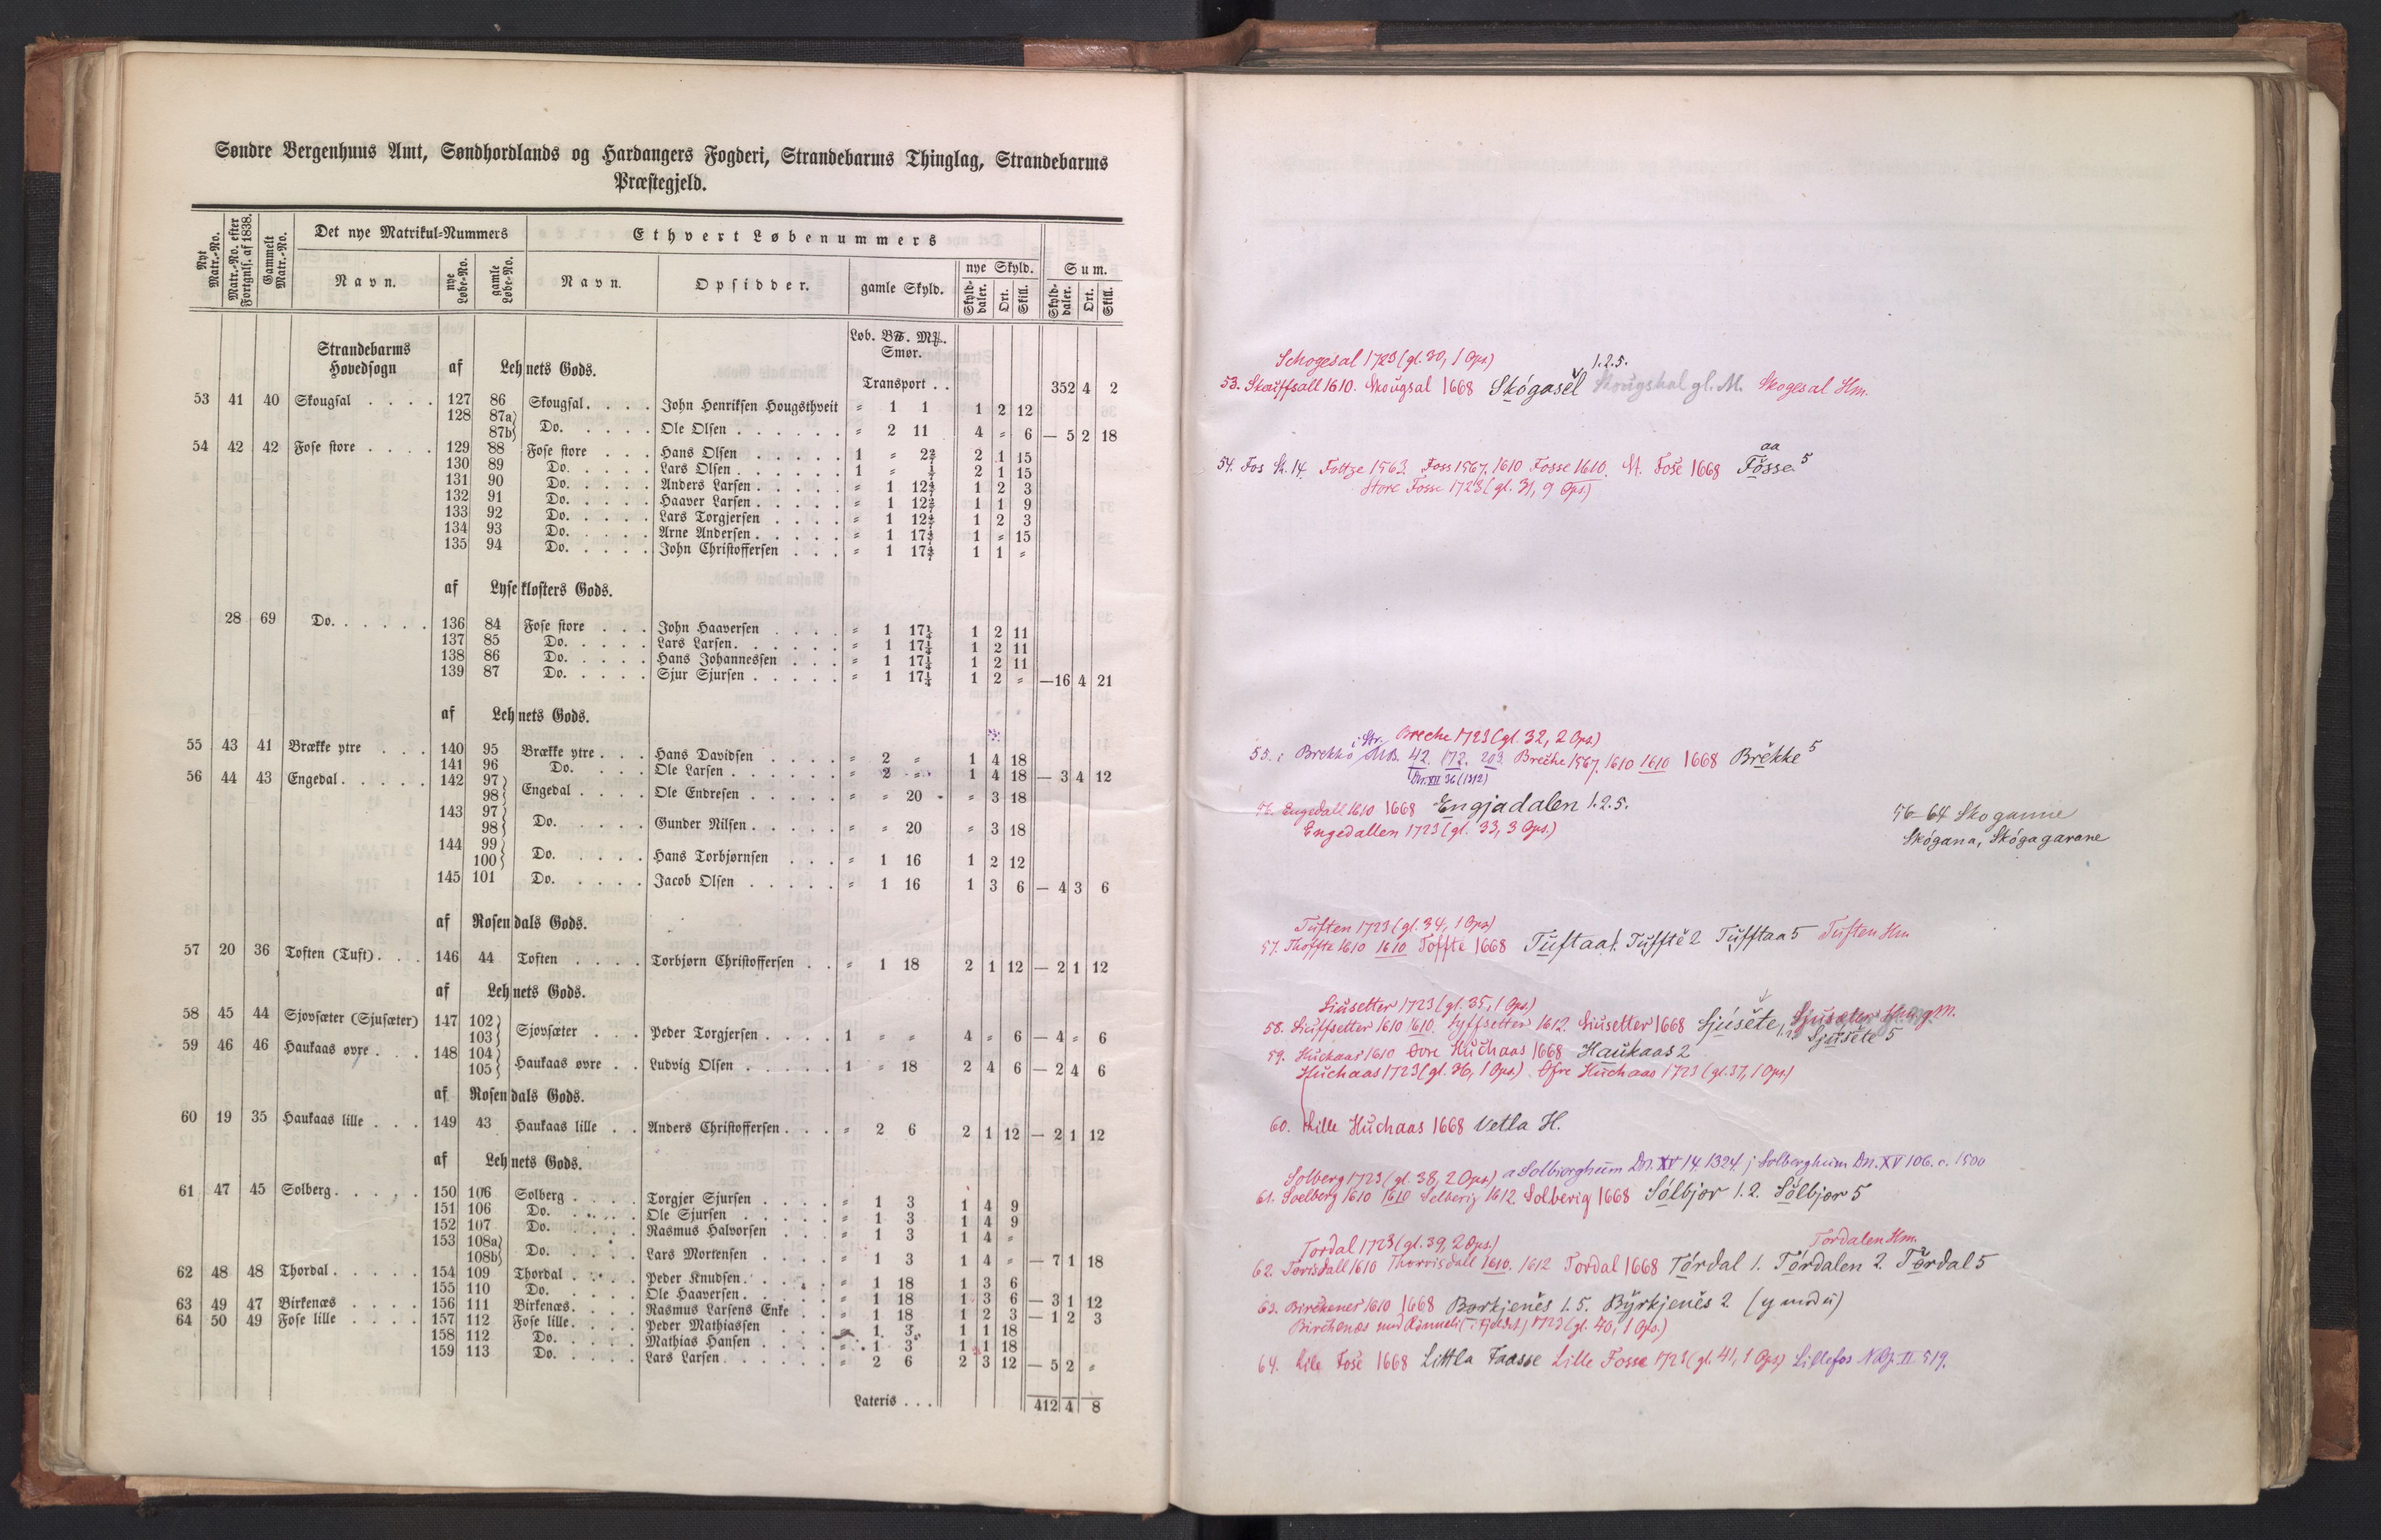 Søndre Bergenhuus Amt, Søndhordlands og Hardangers Fogderi, Strandebarms Thinglag, Strandebarms
Præstegjeld.
Nyt Matr.-No. | Matr.-No. efter Fortgnls. af 1838. | Gammelt Matr.-No. | Det nye Matrikul-Nummers | Ethvert Løbenummers
Navn. | nye Løbe-No. | gamle Løbe-No. | Navn. | Opsidder. | gamle Skyld. | nye Skyld. | Sum.
Skylddaler. | Ort. | Skill. | Skylddaler. | Ort. | Skill.
Strandebarms Hovedsogn | af Lehnets Gods. | Løb. B℔. M℔. Smør.
Transport . . 352 4 2
53 41 40 Skougsal . . . . 127 86 Skougsal. . . . John Henriksen Hougsthveit „ 1 1 1 2 12
128 87a) 87b) Do. . . . . Ole Olsen . . . . . . „ 2 11 4 „ 6 — 5 2 18
54 42 42 Fose store . . . . 129 88 Fose store . . . Hans Olsen . . . . . 1 „ 2 2/7 2 1 15
130 89 Do. . . . . Lars Olsen . . . . . . 1 „ 2 1 15
131 90 Do. . . . . Anders Larsen . . . . . „ 1 12 4/7 1 2 3
132 91 Do. . . . . Haaver Larsen . . . . . „ 1 12 1 1 9
133 92 Do. . . . . Lars Torgjersen . . . . „ 1 12 4/7 1 2 3
134 93 Do. . . . . Arne Andersen . . . . . „ 1 17 1 „ 15
135 94 Do. . . . . John Christoffersen . . . „ 1 17 1 1 „
af Lyseklosters Gods.
28 69 Do. . . . . . 136 84 Fose store . . . John Haaversen . . . . „ 1 17¼ 1 2 11
137 85 Do. . . . . Lars Larsen. . . . . . „ 1 17¼ 1 2 11
138 86 Do. . . . . Hans Johannessen . . . „ 1 17¼ 1 2 11
139 87 Do. . . . . Sjur Sjursen . . . . . „ 1 17¼ 1 2 „ —16 4 21
af Lehnets Gods.
55 43 41 Brække ytre . . . 140 95 Brække ytre . . . Hans Davidsen . . . . „ 2 „ 1 4 18
141 96 Do. . . . Ole Larsen . . . . . . „ 2 „ 1 4 18 — 3 4 12
56 44 43 Engedal . . . . . 142 97) 98) Engedal . . . . Ole Endresen . . . . . „ „ 20 „ 3 18
143 97) 98) Do. . . . . Gunder Nilsen . . . . . „ „ 20 „ 3 18
144 99) 100) Do. . . . . Hans Torbjørnsen . . . „ 1 16 1 2 12
145 101 Do. . . . . Jacob Olsen . . . . . „ 1 16 1 3 6 — 4 3 6
af Rosendals Gods.
57 20 36 Toften (Tuft) . . . 146 44 Toften . . . . Torbjørn Christoffersen . . „ 1 18 2 1 12 — 2 1 12
af Lehnets Gods.
58 45 44 Sjovsæter (Sjusæter) 147 102) 103) Sjovsæter . . . Peder Torgjersen . . . . 1 „ „ 4 „ 6 — 4 „ 6
59 46 46 Haukaas øvre . . . 148 104) 105) Haukaas øvre . . Ludvig Olsen . . . . . 1 „ 18 2 4 6 — 2 4 6
af Rosendals Gods.
60 19 35 Haukaas lille . . . 149 43 Haukaas lille . . Anders Christoffersen . . . „ 2 6 2 1 12 — 2 1 12
af Lehnets Gods.
61 47 45 Solberg . . . . . 150 106 Solberg . . . . Torgjer Sjursen . . . . „ 1 3 1 4 9
151 106 Do. . . . . Ole Sjursen . . . . . „ 1 3 1 4 9
152 107 Do. . . . . Rasmus Halvorsen . . . „ 1 3 1 4 „
153 108a) 108b) Do. . . . . Lars Mortensen . . . . „ 1 3 1 4 „ — 7 1 18
62 48 48 Thordal . . . . . 154 109 Thordal . . . . Peder Knudsen . . . . . „ 1 18 1 3 6
155 110 Do. . . . . Ole Haaversen . . . . . „ 1 18 1 3 6 — 3 1 12
63 49 47 Birkenæs . . . . 156 111 Birkenæs. . . . Rasmus Larsens Enke . . „ 1 18 1 2 3 — 1 2 3
64 50 49 Fose lille . . . . 157 112 Fose lille. . . . Peder Mathiassen . . . „ 1 3 1 1 18
158 112 Do. . . . . Mathias Hansen . . . . „ 1 3 1 1 18
159 113 Do. . . . . Lars Larsen . . . . . . „ 2 6 2 3 12 — 5 2 „
Lateris . . . 412 4 8
Schogesal 1723 (gl. 30, 1 Ops.) 1.2.5.
53. Skauffsall 1610. Skougsal 1668 Skógasel Skougshal gl. M. Skogesal Hm.
aa
54. Fos St. 14. Foltze 1563. Foss 1567, 1610 Fosse 1610. St. Fose 1668 Fosse 5
Store Fosse 1723 (gl. 31, 9 Ops.)
i Str. Breche 1723 (gl. 32, 2 Ops.)
55. i Brekko MB. 42. 172. 203. Breche 1567. 1610 1610 1668 Brekke 5
Dn. XII 36 (1312)
56. Engedall 1610 1668 Engjadalen 1.2.5.
Engedallen 1723 (gl. 33, 3 Ops.)
56-64 Skoganne
Skógana, Skógagarane
Tuften 1723 (gl. 34, 1 Ops.)
57. Thoffte 1610 1610 Toffte 1668 Tuftaa 1. Tuffte 2 Tufftaa 5 Tuften Hm.
Siusetter 1723 (gl. 35, 1 Ops.)
58. Siuffsetter 1610 1610. Syffsetter 1612. Siusetter 1668 Sjúsete, Sjusæter Hm. gl. M.
Sjusete 5
59. Huchaas 1610 Øvre Huchaas 1668 Haukaas 2
Huchaas 1723 (gl. 36, 1 Ops.) Øfre Huchaas 1723 (gl. 37, 1 Ops.)
60. Lille Huchaas 1668 Vetla H.
Solberg 1723 (gl. 38, 2 Ops.) a Solbiorgheim Dn. XV 14 1324 j Solbergheim Dn. XV 106. c. 1500
61. Soelberg 1610 1610 Selberig 1612 Solberig 1668 Sólbjør 1.2. Sólbjør 5
Tordal 1723 (gl. 39, 2 Ops.) Tordalen Hm.
62. Torisdall 1610 Thorrisdall 1610. 1612 Tordal 1668 Tórdal 1. Tórdalen 2. Tordal 5
63. Birckenes 1610 1668 Børkjenes 1.5. Byrkjenes 2 (y mod ú)
Birchenæs 1723 (gl. 40, 1 Ops.)
64. Lile Fose 1668 Littla Faasse Lille Fosse 1723 (gl. 41, 1 Ops) Lillefos NBj. II 519.